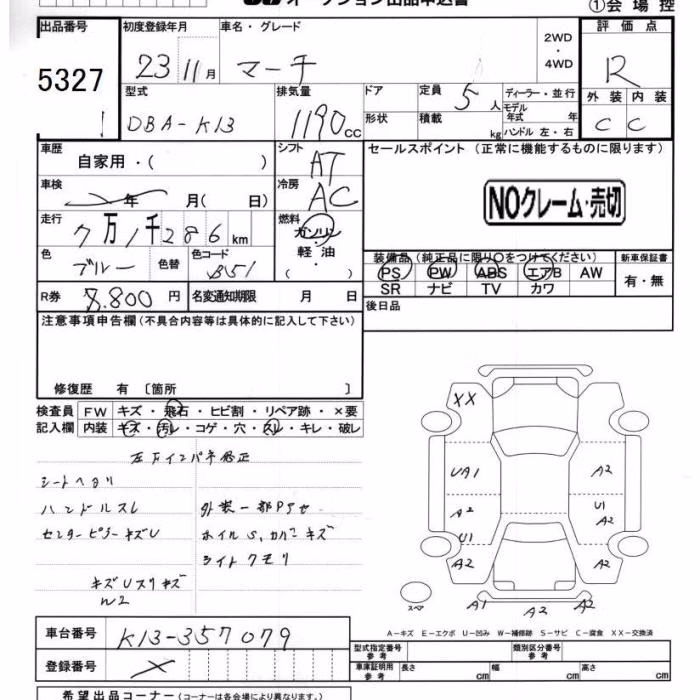 オークション出品申込書
①会場控
出品番号 初度登録年月 車名・グレード 2WD・4WD 評価点
5327 23年11月 マーチ R
型式 排気量 ドア 定員 ディーラー・並行 外装 内装
DBA-K13 1190cc 5人 モデル年式 年 C C
形状 積載 kg ハンドル 左・右
車歴 自家用・( ) シフト AT セールスポイント (正常に機能するものに限ります)
車検 年 月( 日) 冷房 AC NOクレーム・売切
走行 7万1千286km 燃料 ガソリン
軽油
・( )
色 ブルー 色替 色コード B51
装備品 (純正品に限り○をつけてください) 新車保証書
PS PW ABS エアB AW 有・無
SR ナビ TV カワ
R券 8.800円 名変通知期限 月 日
後日品
注意事項申告欄 (不具合内容等は具体的に記入して下さい)
修復歴 有 〔箇所 〕
検査員 FW キズ・飛石・ヒビ割・リペア跡・×要
記入欄 内装 キズ・汚レ・コゲ・穴・スレ・キレ・破レ
シートヘタリ
ハンドルスレ 外装一部PSセ
センターピラーキズU ホイルS,カバーキズ
ライトクモリ
キズUスリキズ
W2
XX
UA1 A2
A2 U1
A2
U1
A2 A2
スペア A1 A2 A2
A-キズ E-エクボ U-凹み W-補修跡 S-サビ C-腐食 XX-交換済
車台番号 K13-357079
型式指定番号 参考 類別区分番号 参考
登録番号
車庫証明用 参考 長さ cm 幅 cm 高さ cm
希望出品コーナー (コーナーは各会場により異なります。)